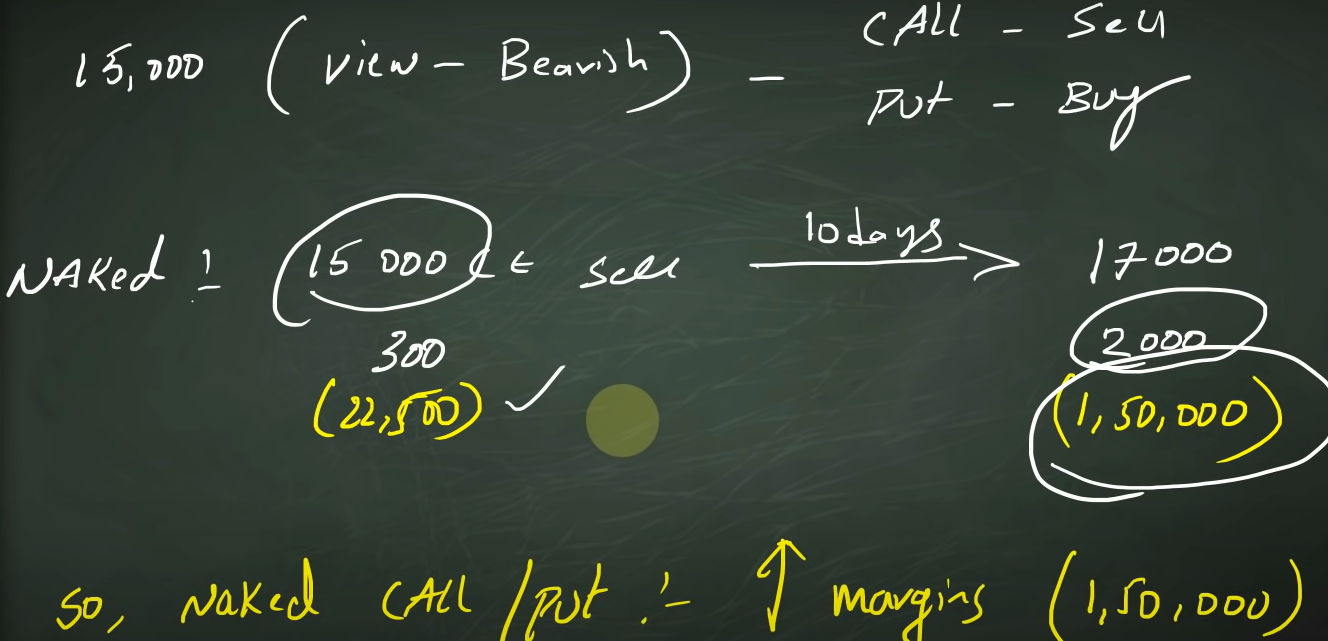 15,000 (view - Bearish) - CALL - Sell
PUT - Buy
NAKed :- 15 000 CE ← sell 10 days → 17000
300 2000
(22,500) ✓ (1,50,000)
so, NAKed CALL/PUT :- ↑ margins (1,50,000)